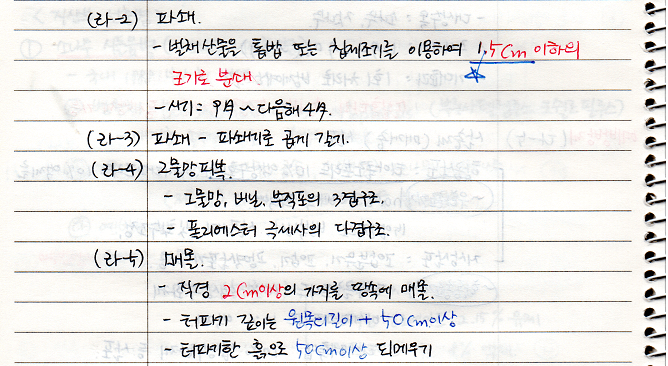 (라-2) 파쇄.
- 벌채산물을 톱밥 또는 칩제조기를 이용하여 1.5cm 이하의
크기로 분대
- 시기 : 9월 ~ 다음해 4월.
(라-3) 파쇄 - 파쇄기로 곱게 갈기.
(라-4) 그물망피복.
- 그물망, 비닐, 부직포의 3겹구조.
- 폴리에스터 극세사의 다겹구조.
(라-5) 매몰.
- 직경 2cm이상의 가지를 땅속에 매몰.
- 터파기 깊이는 원목더길이 + 50cm이상
- 터파기한 흙으로 50cm이상 되메우기